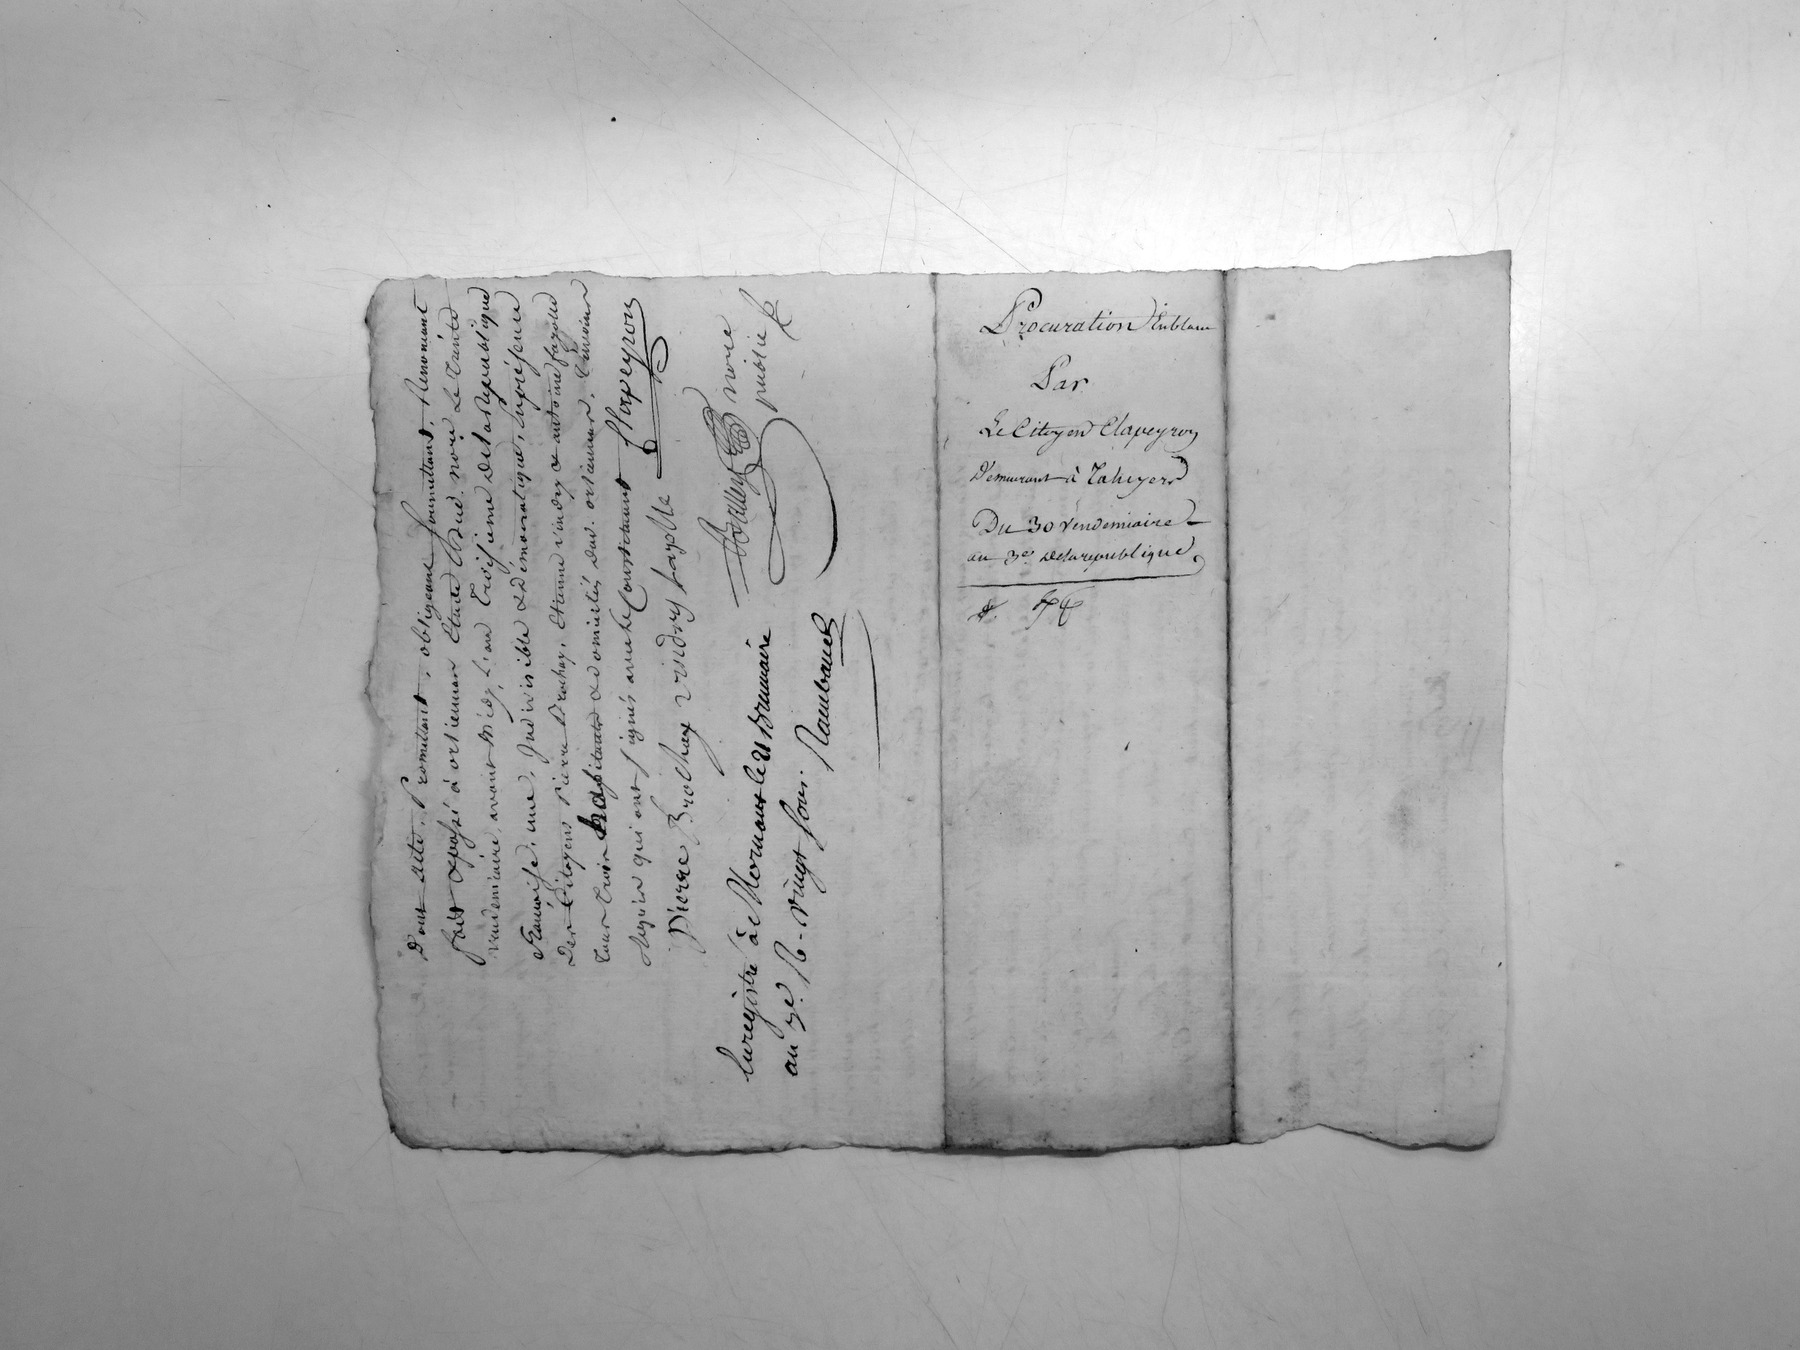 Dont acte, Promettant, obligeant, soumettant, Renoncant
fait & passé à ortiennar Etude dud. nore Le trente
vendemiaire avant midy, L'an troisieme de la republique
francoise, une, Indivisible & démocratique, En présence
Des Citoyens Pierre Brochay, Etienne vindry & antoine fayolle
tous trois habitants & domiciliés dud. ortiennar, témoins
Requis qui ont signés avec le Constituant Clapeyron
Pierre Brochay vindry fayolle
nore
public
Enregistré à Mornant le 21 Brumaire
an 3e. R - vingt sous. Raimbaud
Procuration En blanc
Par
Le Citoyen Clapeyron
Demeurant à
Du 30 vendemiaire
an 3e. de la republique